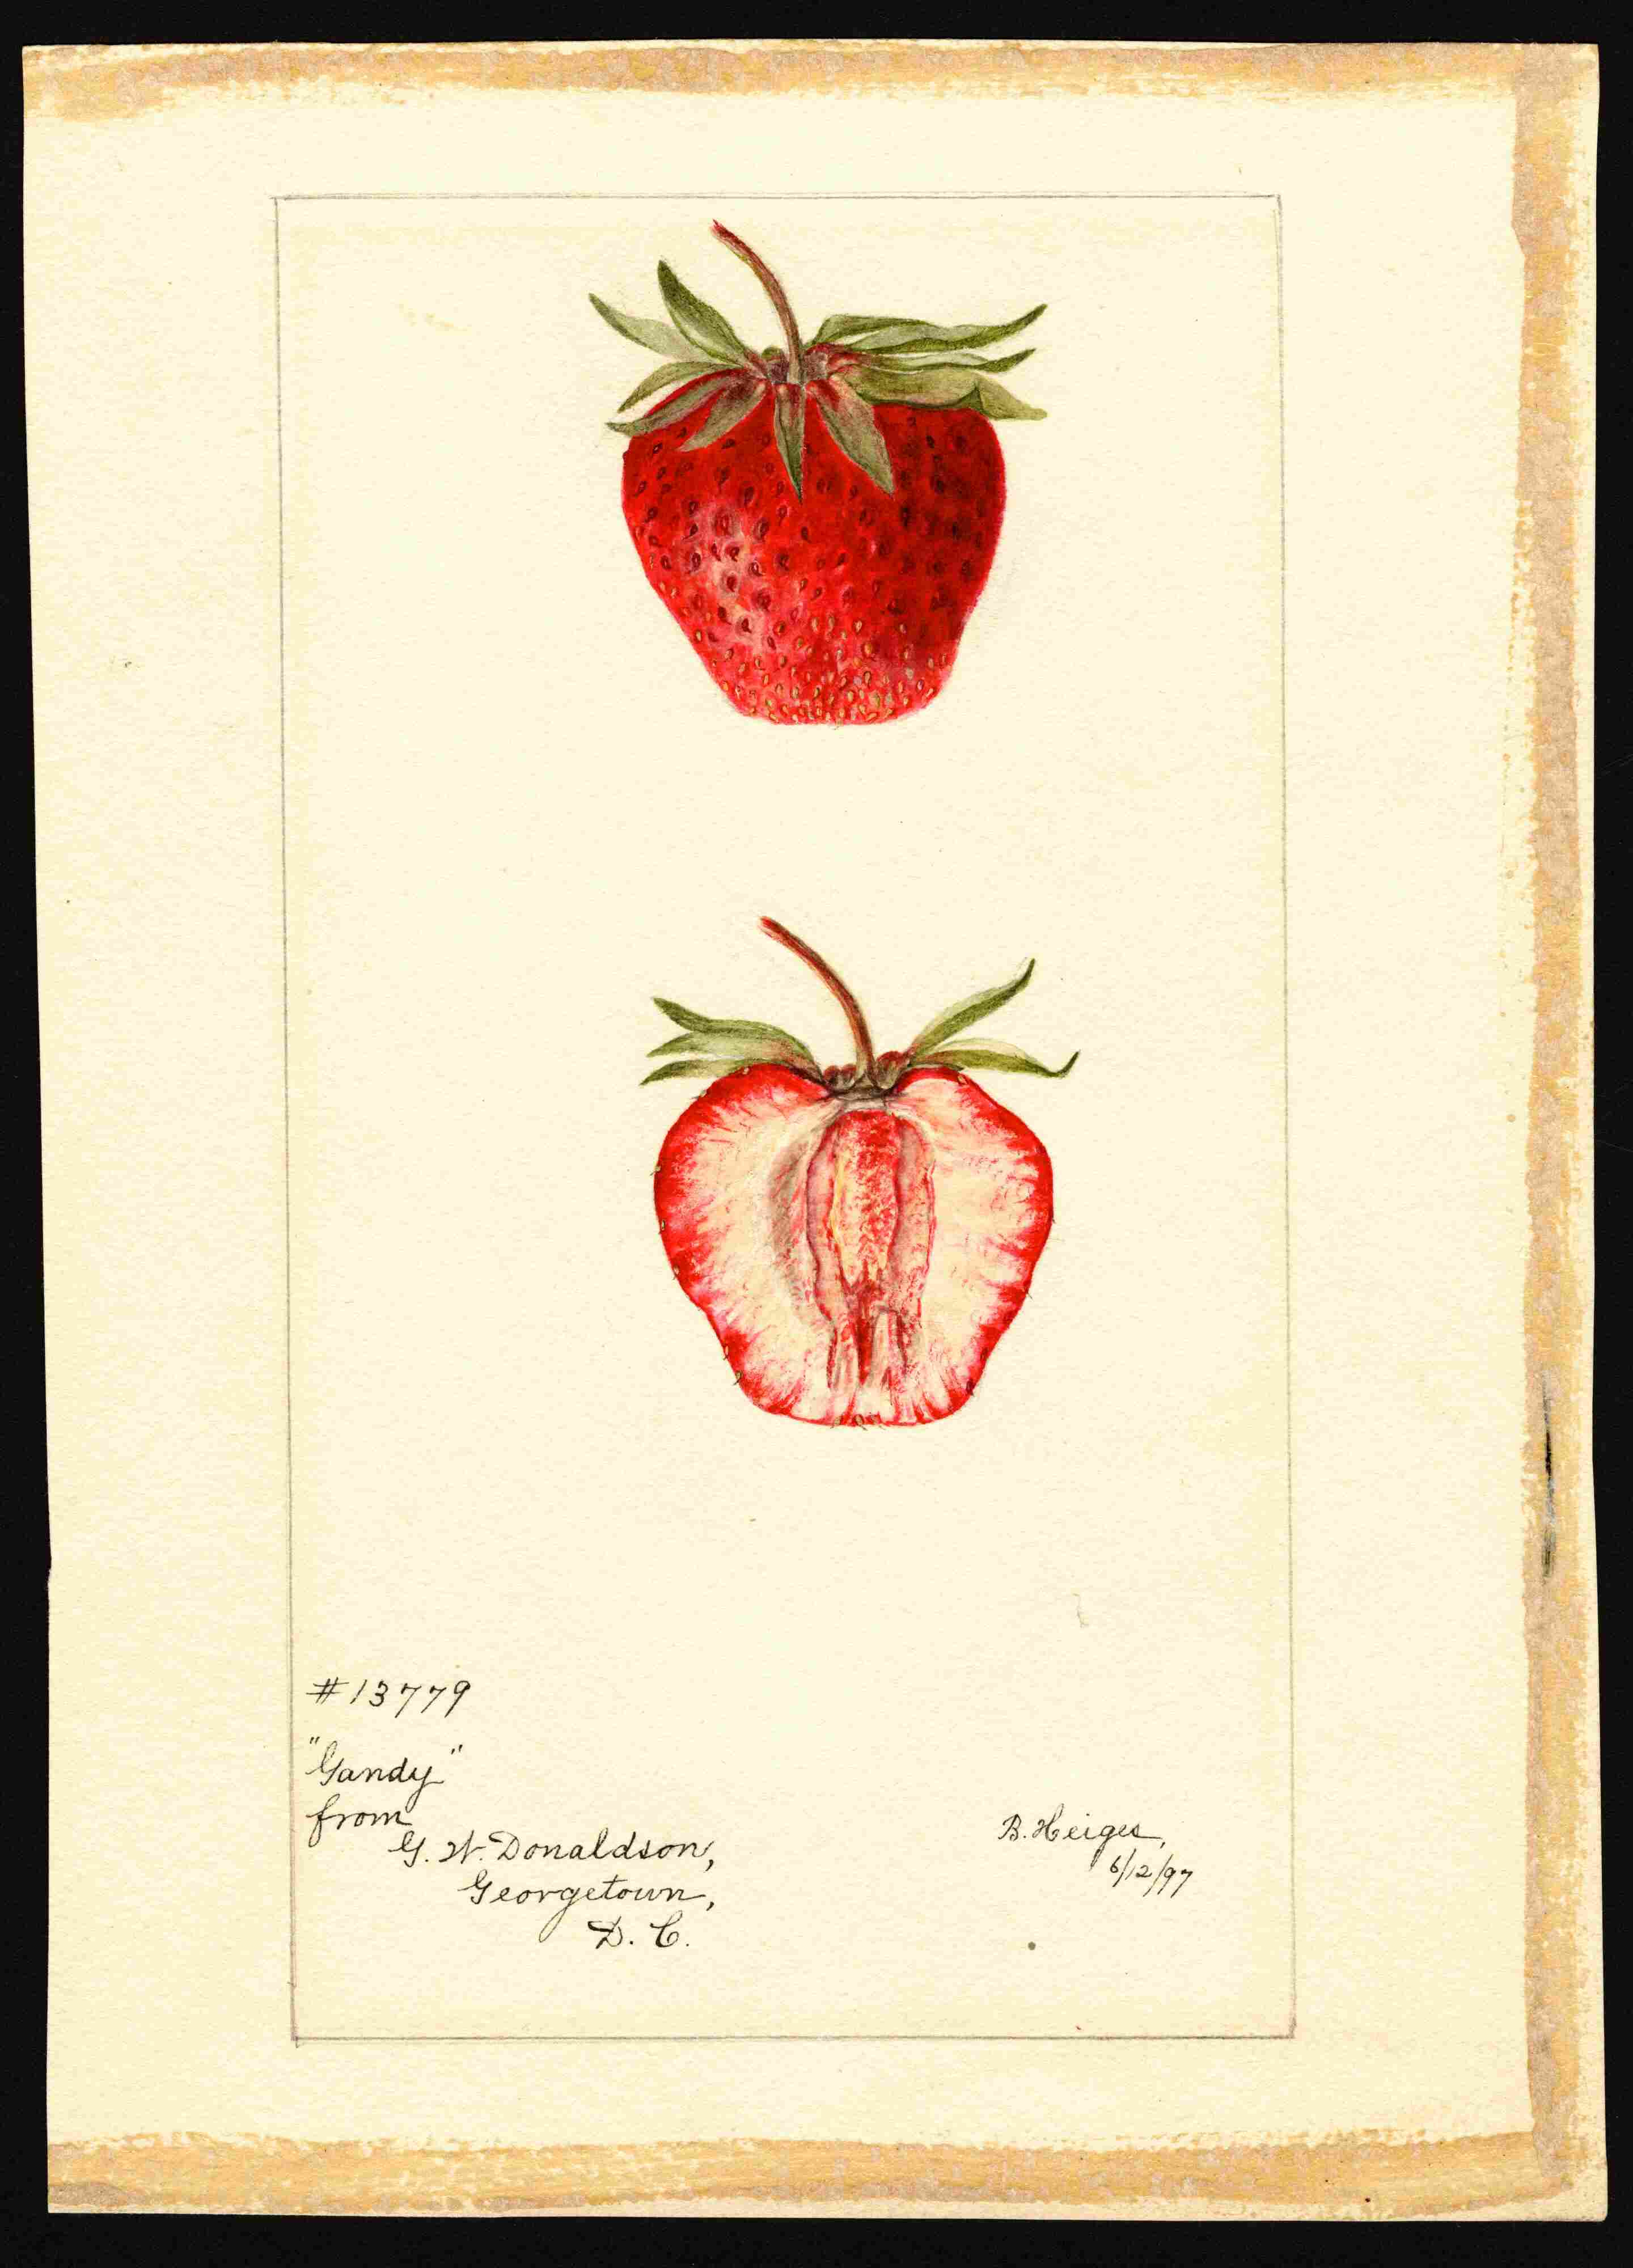 #13779
"Gandy"
from
G. W. Donaldson,
Georgetown,
D. C.
B. Heiges,
6/12/97